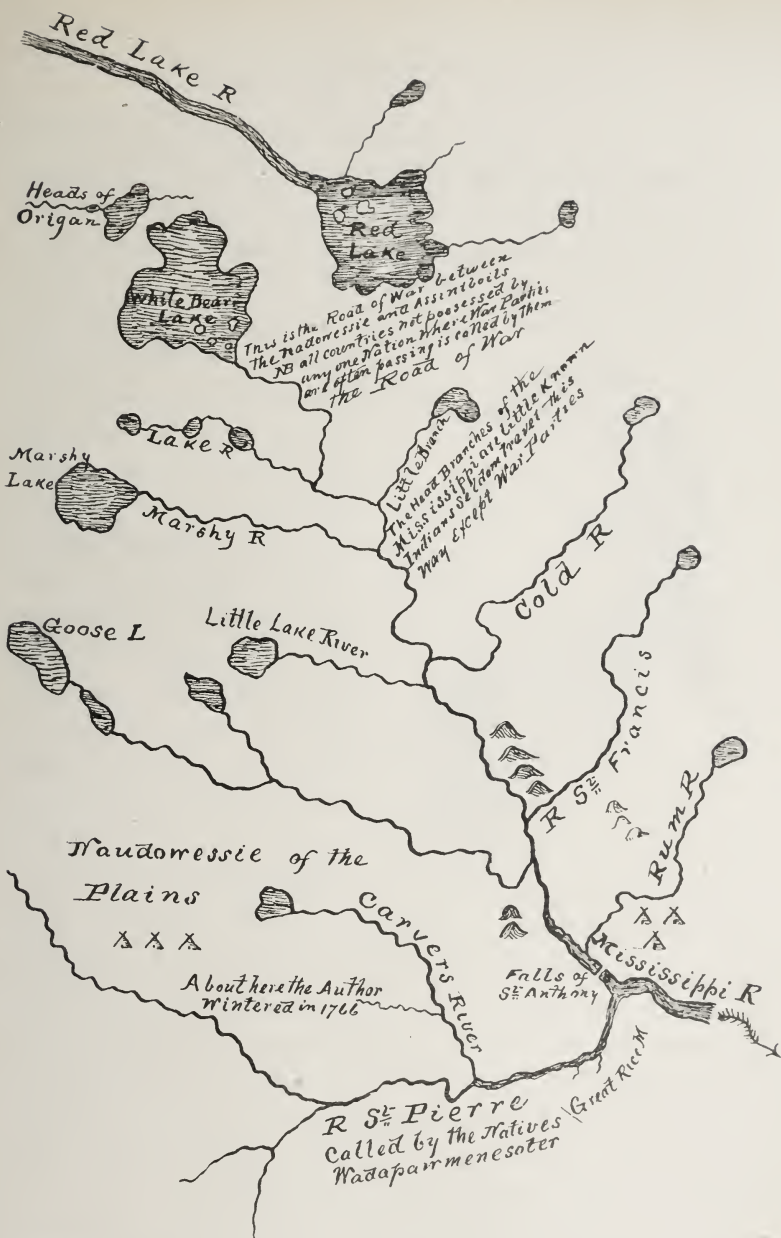 Red Lake R
Heads of
Origan
Red
Lake
White Bear
Lake
This is the Road of War between
the Nadowessie and Assiniboils
NB all countries not possessed by
any one Nation Where War Parties
are often passing is called by them
the Road of War
Lake R
Little Branch
The Head Branches of the
Mississippi are Little Known
Indians Seldom travel this
Way Except War Parties
Marshy
Lake
Marshy R
Cold R
Goose L
Little Lake River
R St Francis
Rum R
Naudowessie of the
Plains
Carvers River
About here the Author
Wintered in 1766
Falls of
St Anthony
Mississippi R
R St Pierre
Called by the Natives
Wadapawmenesoter
Great Rice M